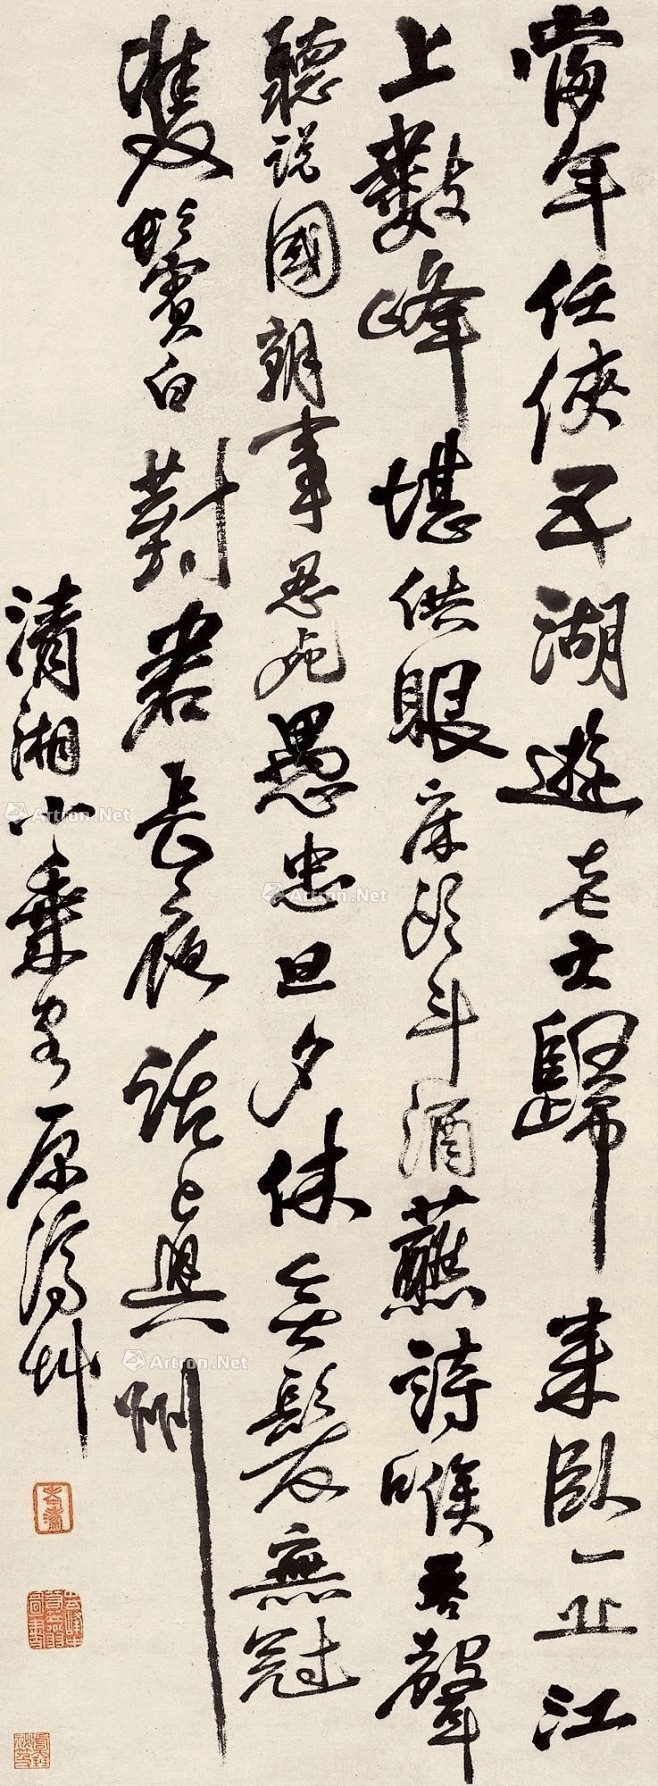 當年任俠五湖遊老大歸來臥一丘江
上數峰堪供眼床頭斗酒蘸詩喉吞聲
聽說國朝事忍死愚忠旦夕休無髮無冠
雙鬢白對君長夜話與州
清湘小乘客原濟艸
Artron.Net
Artron.Net
Artron.Net